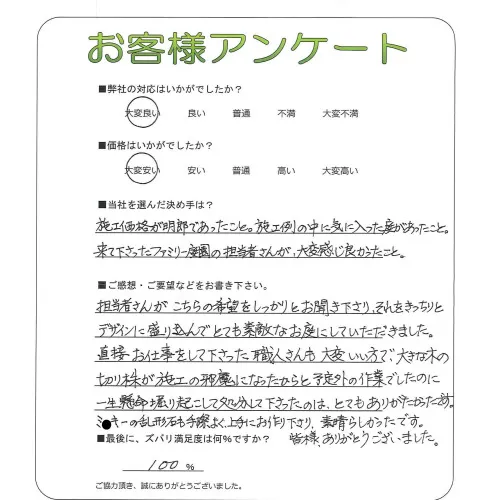 お客様アンケート
■弊社の対応はいかがでしたか？
大変良い 良い 普通 不満 大変不満
■価格はいかがでしたか？
大変安い 安い 普通 高い 大変高い
■当社を選んだ決め手は？
施工価格が明郎であったこと。施工例の中に気に入った庭があったこと。
来て下さったファミリー庭園の担当者さんが、大変感じ良かったこと。
■ご感想・ご要望などをお書き下さい。
担当者さんがこちらの希望をしっかりとお聞き下さり、それをきっちりと
デザインに盛り込んでとても素敵なお庭にしていただきました。
直接お仕事をして下さった職人さんも大変いい方で、大きな木の
切り株が施工の邪魔になったからと予定外の作業でしたのに
一生懸命掘り起こして処分して下さったのは、とてもありがたかったです。
ミッキーの乱形石も手際よく上手にお作り下さり、素晴らしかったです。
皆様、ありがとうございました。
■最後に、ズバリ満足度は何％ですか？
100 ％
ご協力頂き、誠にありがとうございました。